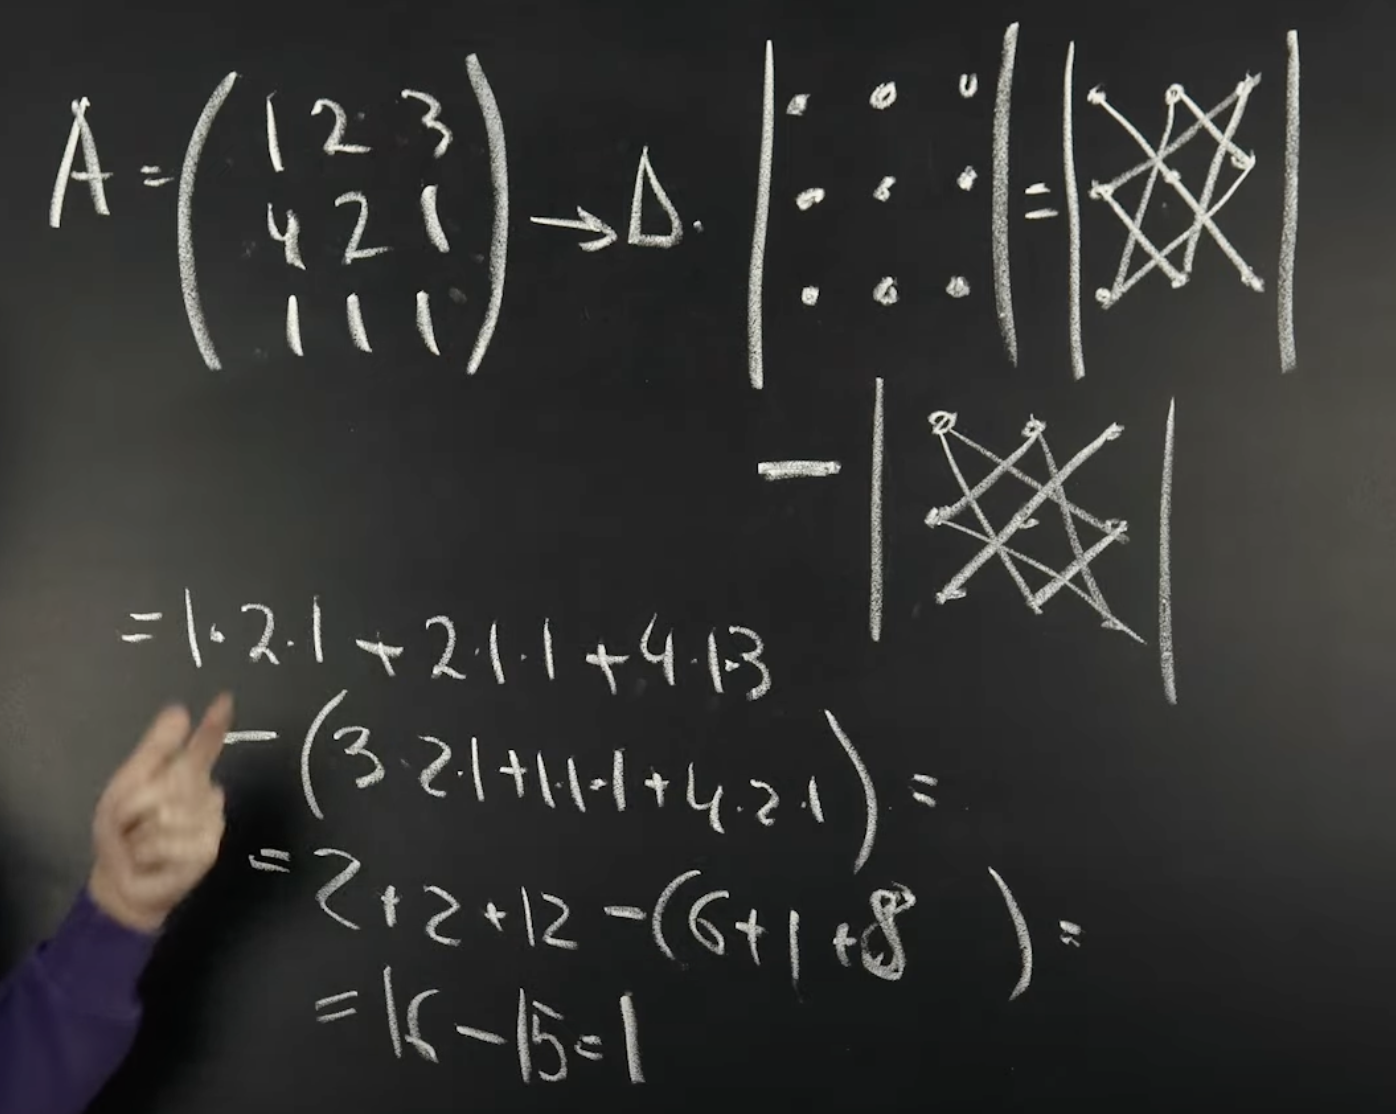 A = ( 1 2 3
4 2 1
1 1 1 ) → Δ. | | = | |
− | |
= 1·2·1 + 2·1·1 + 4·1·3
− (3·2·1+1·1·1+4·2·1) =
= 2+2+12 −(6+1+8 ) =
= 16 − 15 = 1